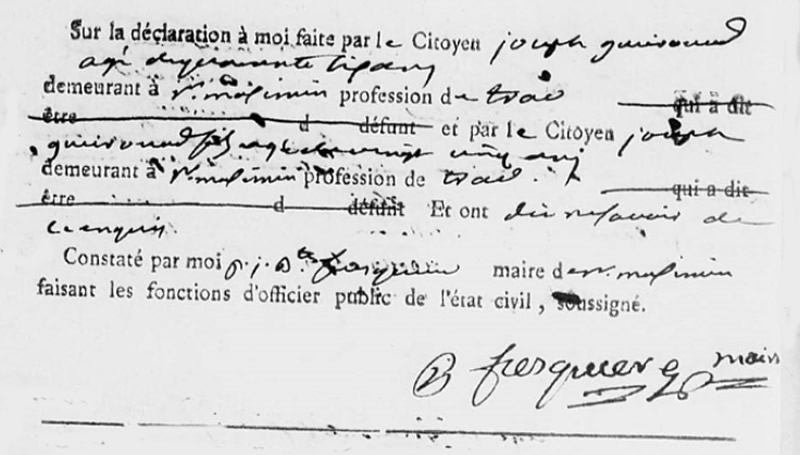 Sur la déclaration à moi faite par le Citoyen joseph guiroaud
agé de soixante six ans
demeurant à st. maximin profession de trav. qui a dit
être d défunt et par le Citoyen joseph
guiroaud fils agé de vingt cinq ans
demeurant à st. maximin profession de trav. qui a dit
être d défunt Et ont dit ne savoir de
ce enquis.
Constaté par moi p. j. Bte. fresquiere maire de st. maximin
faisant les fonctions d'officier public de l'état civil, soussigné.
B fresquiere maire